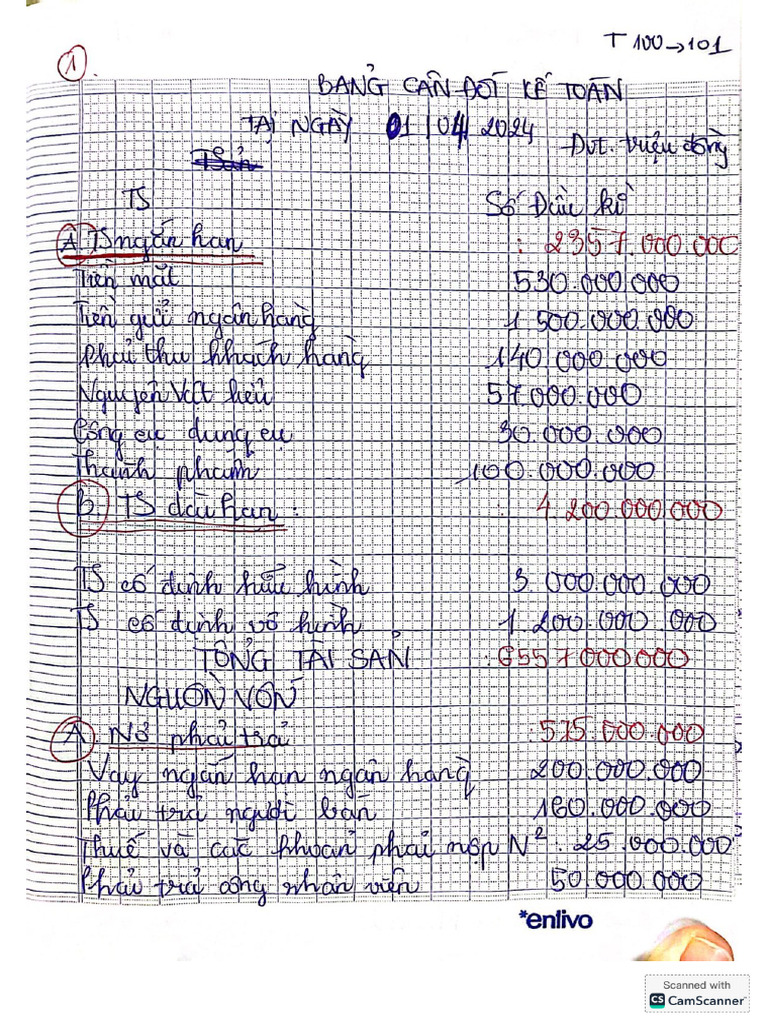 T 100→101
1
BẢNG CÂN ĐỐI KẾ TOÁN
TẠI NGÀY 01/04/2024
Đvt. triệu đồng
TSản
TS Số Đầu kì
A TS ngắn hạn : 2357.000.000
Tiền mặt 530.000.000
Tiền gửi ngân hàng 1 500.000.000
Phải thu khách hàng 140.000.000
Nguyên Vật liệu 57.000.000
Công cụ dụng cụ 30.000.000
Thành phẩm 100.000.000
B. TS dài hạn : 4.200.000.000
TS cố định hữu hình 3 000.000.000
TS cố định vô hình 1.200.000.000
TỔNG TÀI SẢN : 6557000000
NGUỒN VỐN
A. Nợ phải trả : 575.000.000
Vay ngắn hạn ngân hàng 200.000.000
Phải trả người bán 160.000.000
Thuế và các khoản phải nộp N² : 25.000.000
Phải trả công nhân viên 50.000.000
*enlivo
Scanned with
CS CamScanner